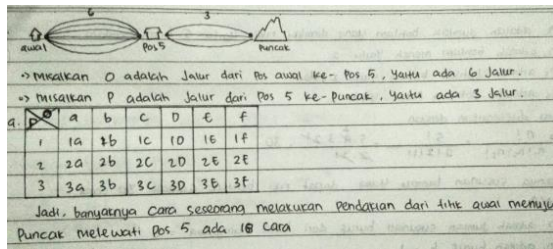 6 3
awal Pos 5 Puncak
•> Misalkan O adalah Jalur dari Pos awal ke- Pos 5, Yaitu ada 6 Jalur.
•> Misalkan P adalah Jalur dari Pos 5 ke- Puncak, Yaitu ada 3 Jalur.
a. P O a b c D E f
1 1a 1b 1C 1D 1E 1f
2 2a 2b 2C 2D 2E 2E
3 3a 3b 3C 3D 3E 3f
Jadi, banyaknya Cara Seseorang melakukan Pendakian dari titik awal menuju
Puncak melewati Pos 5 ada 18 Cara